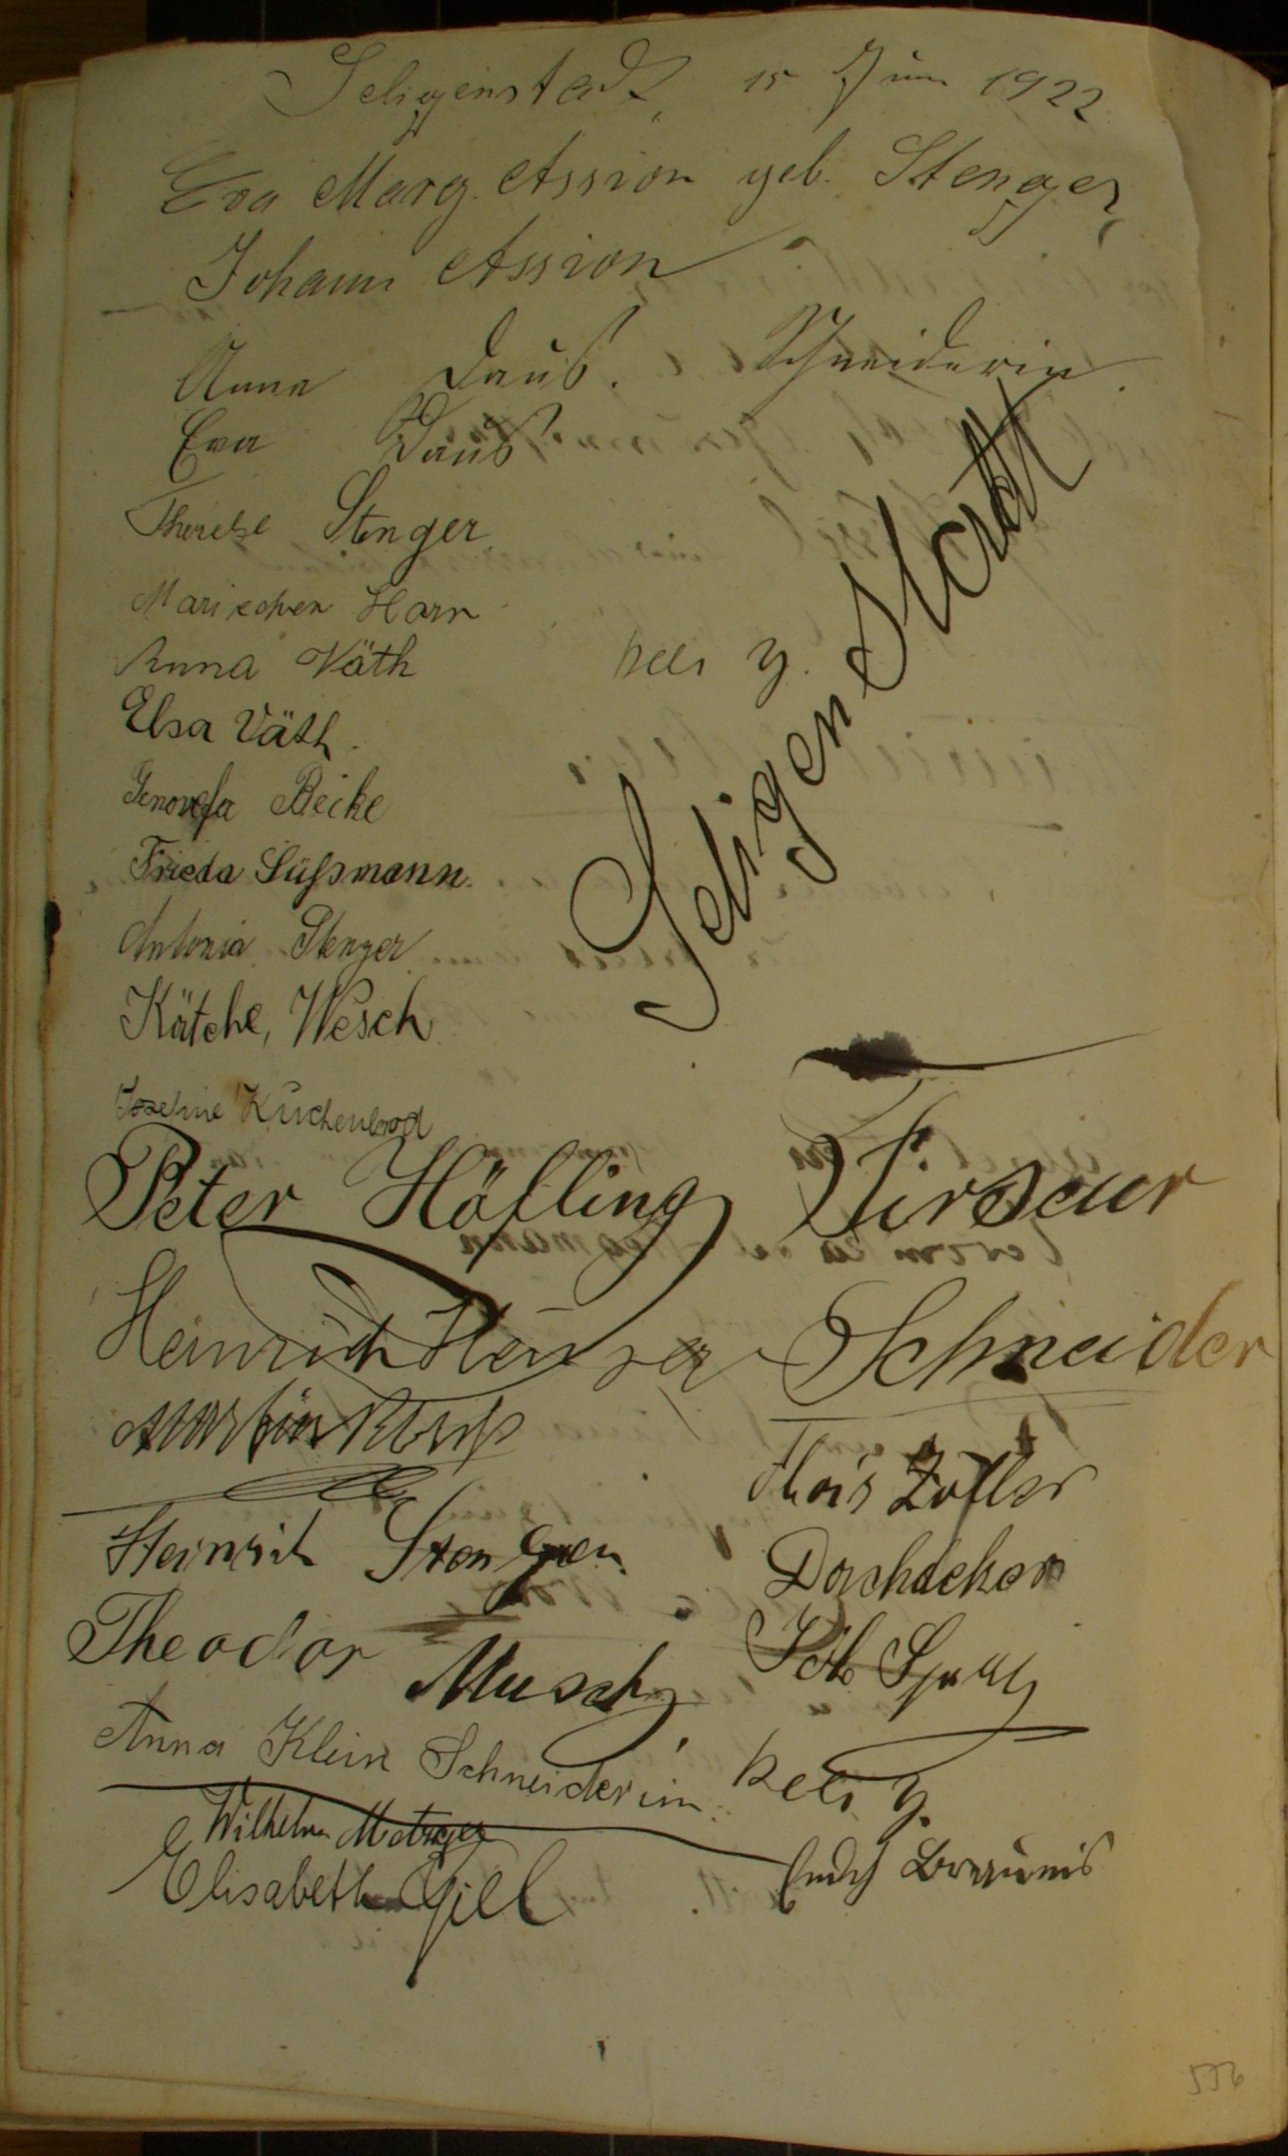 Seligenstadt, 15 Juni 1922
Eva Marg. Assion geb. Stenger,
Johann Assion
Anna Daus. Schneiderin.
Eva Daus
Therese Stenger
Mariechen Horn
Anna Väth
Elsa Väth.
Seligenstadt
Genovefa Beike
Frieda Süßmann.
Antonia Stenger
Kätche, Wesch
Josefine Kuchenbrod
Peter Höfling Firseur
Heinrich Schneider
Martin
Alois Zöller
Heinrich Stenger
Dachdeker
Theodor Musch
Anna Klein Schneiderin.
Wilhelm Metzger
Elisabeth Giel